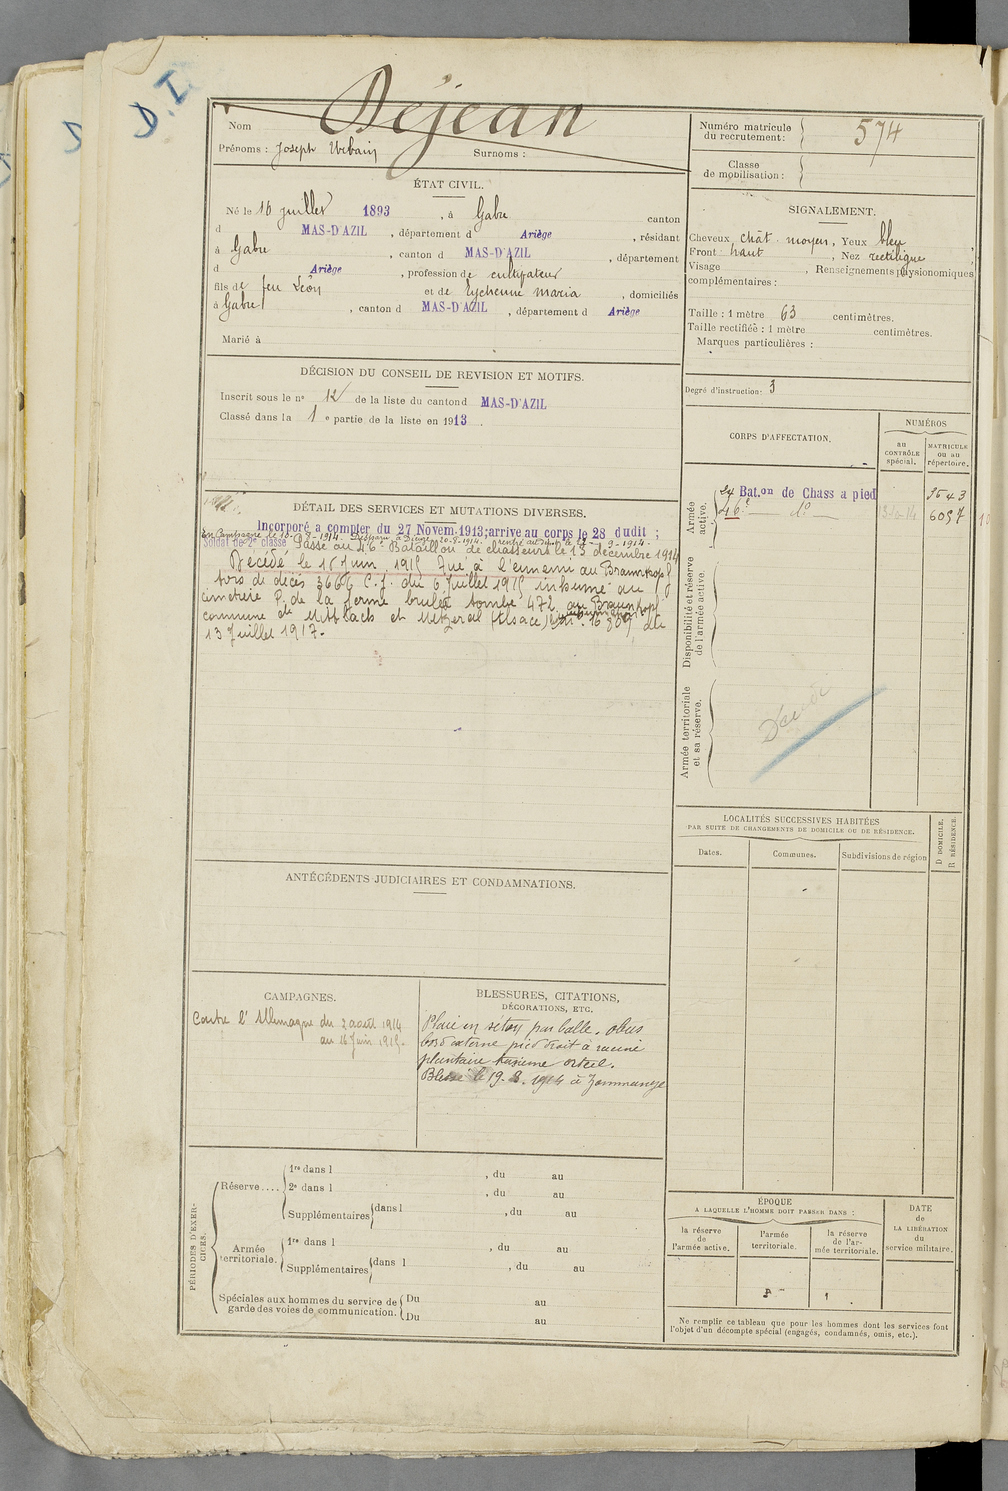 D.I.
Nom Déjean
Prénoms : Joseph Urbain Surnoms :
Numéro matricule du recrutement : 574
Classe de mobilisation :
ÉTAT CIVIL.
Né le 16 juillet 1893, à Gabre canton
d MAS-D'AZIL, département d Ariège, résidant
à Gabre, canton d MAS-D'AZIL, département
d Ariège, profession de cultivateur
fils de feu Léon et de Eychenne Maria, domiciliés
à Gabre, canton d MAS-D'AZIL, département d Ariège
Marié à
SIGNALEMENT.
Cheveux chât. moyen, Yeux bleu
Front haut, Nez rectiligne
Visage, Renseignements physionomiques
complémentaires :
Taille : 1 mètre 63 centimètres.
Taille rectifiée : 1 mètre centimètres.
Marques particulières :
Degré d'instruction : 3
DÉCISION DU CONSEIL DE REVISION ET MOTIFS.
Inscrit sous le nº 12 de la liste du canton d MAS-D'AZIL
Classé dans la 1 e partie de la liste en 1913.
CORPS D'AFFECTATION.
NUMÉROS
au CONTRÔLE spécial.
MATRICULE ou au répertoire.
Armée active.
24 Bat.on de Chass a pied 3543
46e dº 6097
Disponibilité et réserve de l'armée active.
Armée territoriale et sa réserve.
Décédé
DÉTAIL DES SERVICES ET MUTATIONS DIVERSES.
Incorporé a compter du 27 Novem. 1913; arrive au corps le 28 dudit ;
Soldat de 2e classe Passé au 46e Bataillon de chasseurs le 13 décembre 1914
Décédé le 16 Juin 1915 Tué à l'ennemi au Braunkopf
avis de décès 3666 C.J. du 6 Juillet 1915 inhumé au
cimetière P. de la ferme brulée tombe 472 au Braunkopf
commune de Mittlach et Metzeral (Alsace)
13 Juillet 1917.
LOCALITÉS SUCCESSIVES HABITÉES
PAR SUITE DE CHANGEMENTS DE DOMICILE OU DE RÉSIDENCE.
Dates. Communes. Subdivisions de région
D DOMICILE.
R RÉSIDENCE.
ANTÉCÉDENTS JUDICIAIRES ET CONDAMNATIONS.
CAMPAGNES.
Contre l'Allemagne du 2 août 1914
au 16 Juin 1915.
BLESSURES, CITATIONS,
DÉCORATIONS, ETC.
Plaie en séton par balle. obus
bord externe pied droit à racine
plantaire troisième orteil.
Blessé le 19. 8. 1914 à Zommange
PÉRIODES D'EXERCICES.
Réserve.... 1re dans l , du au
2e dans l , du au
Supplémentaires dans l , du au
Armée territoriale. 1re dans l , du au
Supplémentaires dans l , du au
Spéciales aux hommes du service de Du au
garde des voies de communication. Du au
ÉPOQUE
A LAQUELLE L'HOMME DOIT PASSER DANS :
la réserve de l'armée active.
l'armée territoriale.
la réserve de l'armée territoriale.
DATE de LA LIBÉRATION du service militaire.
Ne remplir ce tableau que pour les hommes dont les services font
l'objet d'un décompte spécial (engagés, condamnés, omis, etc.).